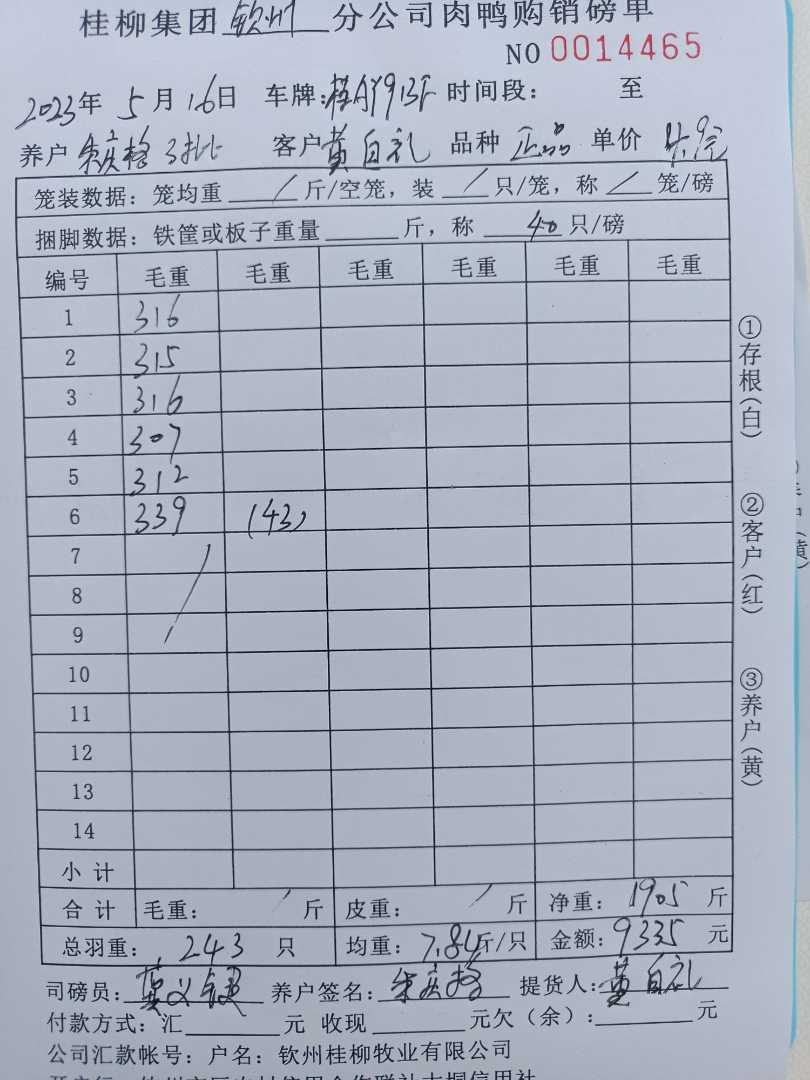 桂柳集团 钦州 分公司肉鸭购销磅单
NO 0014465
2023年 5月16日 车牌: 时间段: 至
养户 朱庆格 3批 客户 黄自礼 品种 正品 单价 4.9元
笼装数据: 笼均重 / 斤/空笼, 装 / 只/笼, 称 / 笼/磅
捆脚数据: 铁筐或板子重量 斤, 称 40 只/磅
编号 毛重 毛重 毛重 毛重 毛重 毛重
1 316
2 315
3 316
4 307
5 312
6 339 (43)
7
8
9
10
11
12
13
14
小计
合计 毛重: / 斤 皮重: / 斤 净重: 1905 斤
总羽重: 243 只 均重: 7.84斤/只 金额: 9335 元
司磅员: 养户签名: 朱庆格 提货人: 黄自礼
付款方式: 汇 元 收现 元欠(余): 元
公司汇款帐号: 户名: 钦州桂柳牧业有限公司
①存根(白)
②客户(红)
③养户(黄)